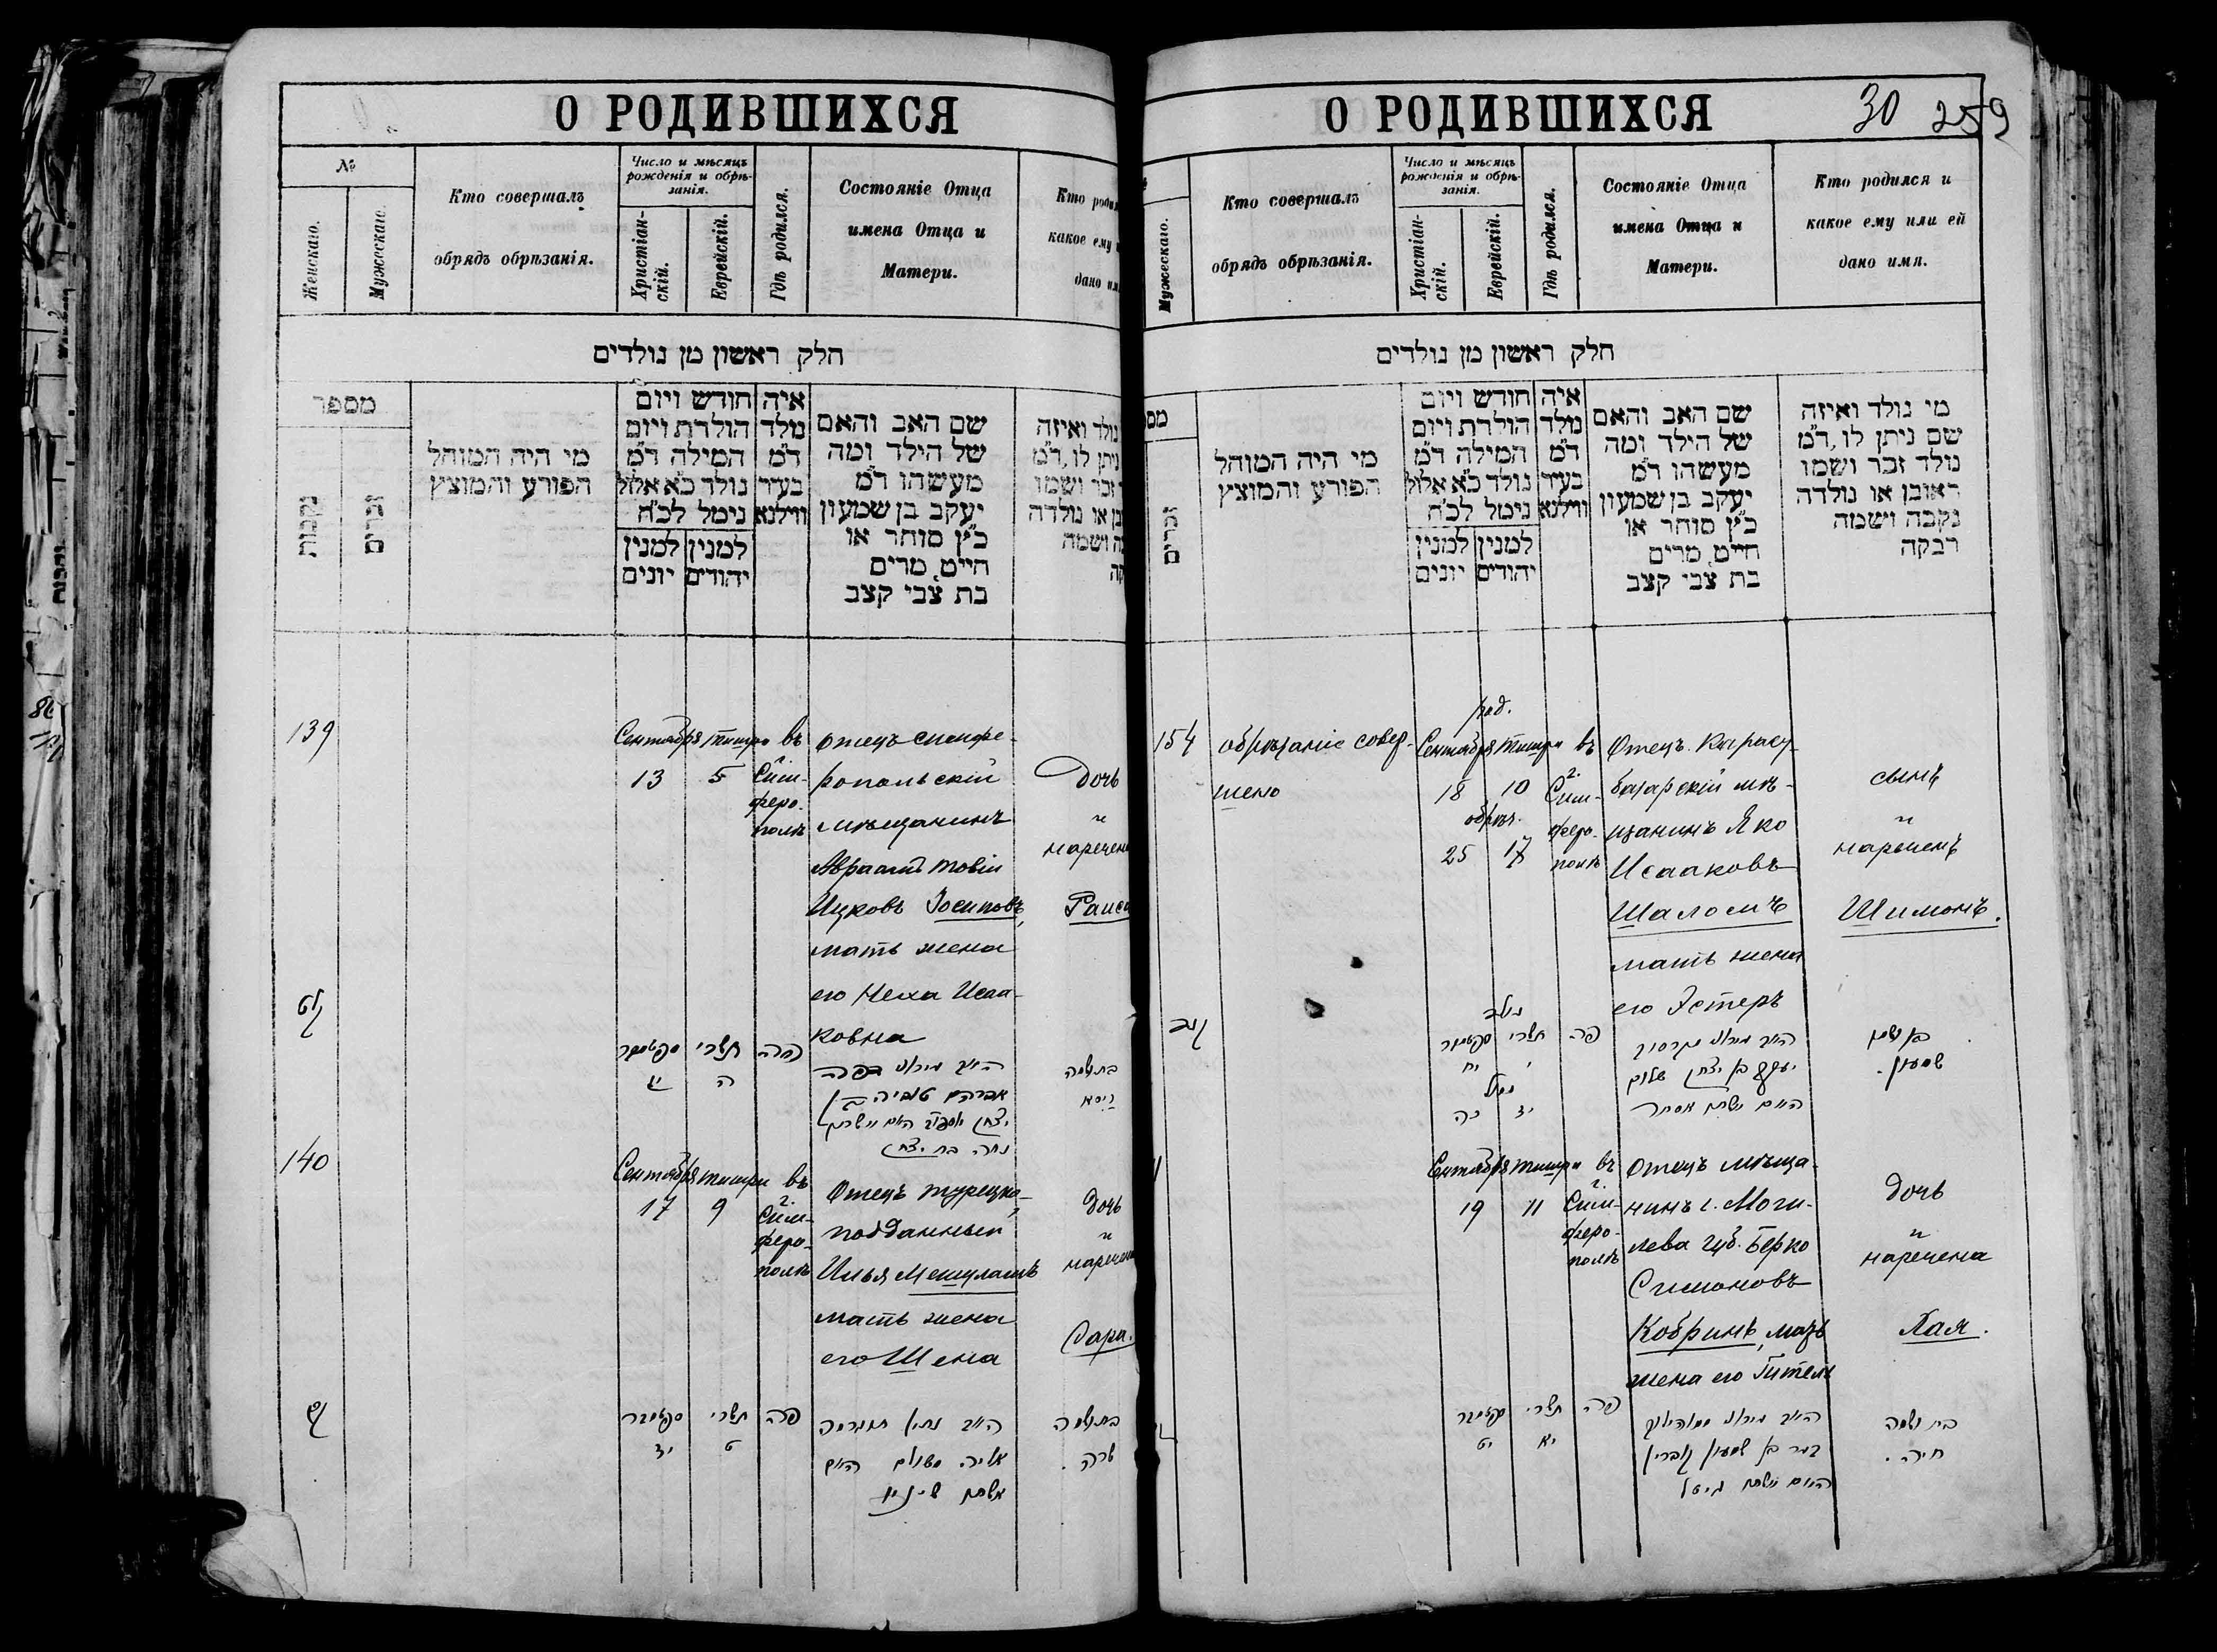 О РОДИВШИХСЯ
№
Женскаго.
Мужескаго.
Кто совершалъ
обрядъ обрѣзанія.
Число и мѣсяцъ
рожденія и обрѣ-
занія.
Христіан-
скій.
Еврейскій.
Гдѣ родился.
Состояніе Отца
имена Отца и
Матери.
Кто роди
какое ему
дано им
חלק ראשון מן נולדים
מספר
נקבות
זכרים
מי היה המוהל
הפורע והמוצץ
חודש ויום
הולדת ויום
המילה ד״מ
נולד כ״א אלול
נימל לכ״ח
למנין למנין
יהודים יונים
איה
נולד
ד״מ
בעיר
ווילנא
שם האב והאם
של הילד ומה
מעשהו ד״מ
יעקב בן שמעון
כ״ץ סוחר או
חייט, מרים
בת צבי קצב
נולד ואיזה
ניתן לו, ד״מ
זכר ושמו
או נולדה
ושמה
139
Сентября тишри въ
13 5 г. Сим-
феро-
полѣ
отецъ симфе-
ропольскій
мѣщанинъ
Авраамъ Товій
Ицковъ Іосиповъ,
мать жена
его Неха Исаа-
ковна
Дочь
и
наречена
Раиса
קלט
ספטמבר תשרי פרה
יג ה
אברהם טוביה בן
נחה בת יצחק
בת ושמה
רייסא
140
Сентября тишри въ
17 9 г. Сим-
феро-
полѣ
Отецъ турецко-
подданный
Илья Мешуламъ
мать жена
его Шена
Дочь
и
наречена
Сара.
קמ
ספטמבר תשרי פרה
יז ט
אליה משולם
בת ושמה
שרה.
О РОДИВШИХСЯ
30 259
Мужескаго.
Кто совершалъ
обрядъ обрѣзанія.
Число и мѣсяцъ
рожденія и обрѣ-
занія.
Христіан-
скій.
Еврейскій.
Гдѣ родился.
Состояніе Отца
имена Отца и
Матери.
Кто родился и
какое ему или ей
дано имя.
חלק ראשון מן נולדים
מס
זכרים
מי היה המוהל
הפורע והמוצץ
חודש ויום
הולדת ויום
המילה ד״מ
נולד כ״א אלול
נימל לכ״ח
למנין למנין
יהודים יונים
איה
נולד
ד״מ
בעיר
ווילנא
שם האב והאם
של הילד ומה
מעשהו ד״מ
יעקב בן שמעון
כ״ץ סוחר או
חייט, מרים
בת צבי קצב
מי נולד ואיזה
שם ניתן לו, ד״מ
נולד זכר ושמו
ראובן או נולדה
נקבה ושמה
רבקה
154
обрѣзаніе совер-
шено
род.
Сентября тишри въ
18 10 г. Сим-
обрѣз. феро-
25 17 полѣ
Отецъ Карасу-
базарскій мѣ-
щанинъ Яко
Исааковъ
Шаломъ
мать жена
его Эстеръ
сынъ
и
нареченъ
Шимонъ.
נולד
ספטמבר תשרי פרה
יח י
נימול
כה יז
יעקב בן יצחק שלום
בן ושמו
שמעון.
Сентября тишри въ
19 11 г. Сим-
феро-
полѣ
Отецъ мѣща-
нинъ г. Моги-
лева губ. Берко
Симоновъ
Кобринъ, мать
жена его Гитель
Дочь
и
наречена
Хая.
ספטמבר תשרי פרה
יט יא
בער בן שמעון קוברין
בת ושמה
חיה.